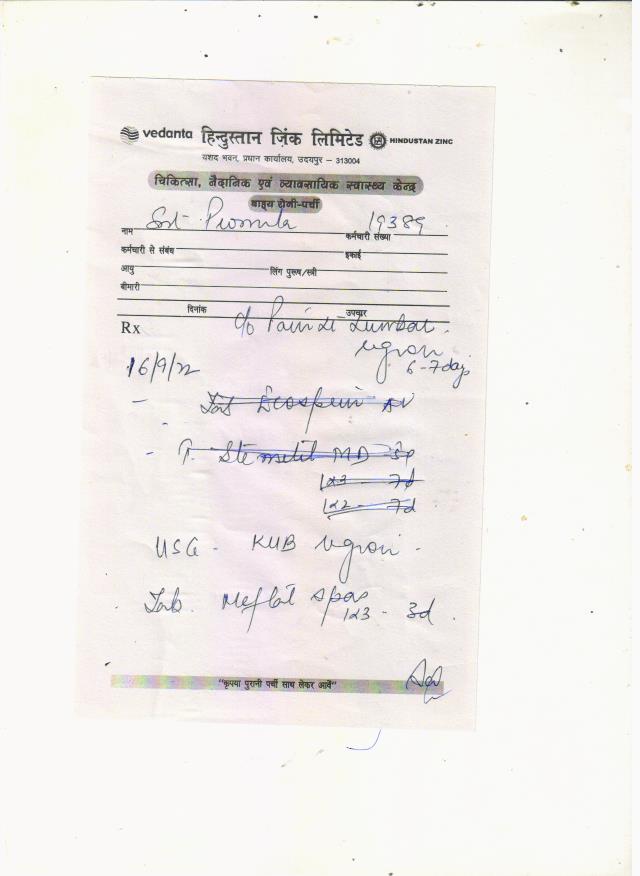 vedanta हिन्दुस्तान ज़िंक लिमिटेड HINDUSTAN ZINC
यशद भवन, प्रधान कार्यालय, उदयपुर – 313004
चिकित्सा, नैदानिक एवं व्यावसायिक स्वास्थ्य केन्द्र
बाह्य रोगी-पर्ची
नाम Smt Promila कर्मचारी संख्या 19389
कर्मचारी से संबंध इकाई
आयु लिंग पुरूष/स्त्री
बीमारी
दिनांक उपचार
Rx c/o Pain Lumbar
region
16/9/22 6-7 days
Tab Ecosprin AV
T. Stemetil MD
1x3 - 7d
1x2 - 7d
USG - KUB region -
Tab. Meftal spas
1x3 - 3d.
"कृपया पुरानी पर्ची साथ लेकर आवें"